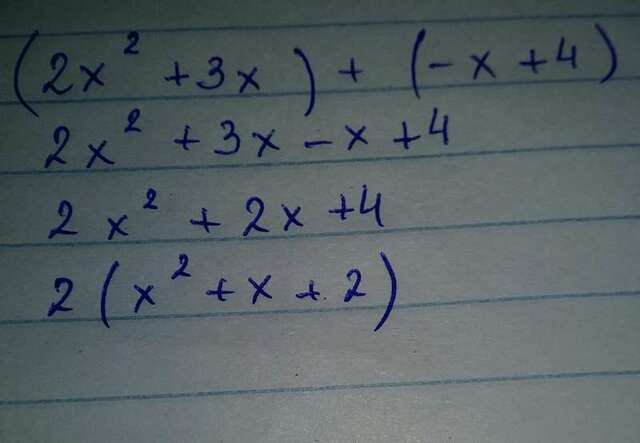 (2x² + 3x) + (-x + 4)
2x² + 3x - x + 4
2x² + 2x + 4
2(x² + x + 2)